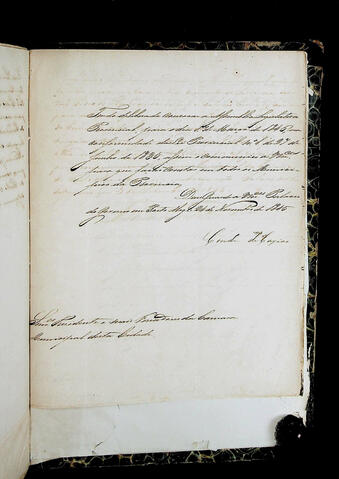 Tendo deliberado convocar a Assemblea Legislativa
Provincial, para o dia 1º de Março de 1846, em
conformidade da Lei Provincial Nº 1 de 27 de
Junho de 1835, assim o communico a Vmces
para que faça constar em todo o Muni-
cipio da Provincia.
Deus Guarde a Vmces Palacio
do Governo em Porto Alegre 26 de Novembro de 1845
Conde de Caxias
Snres Presidente e mais Vereadores da Camara
Municipal desta Cidade